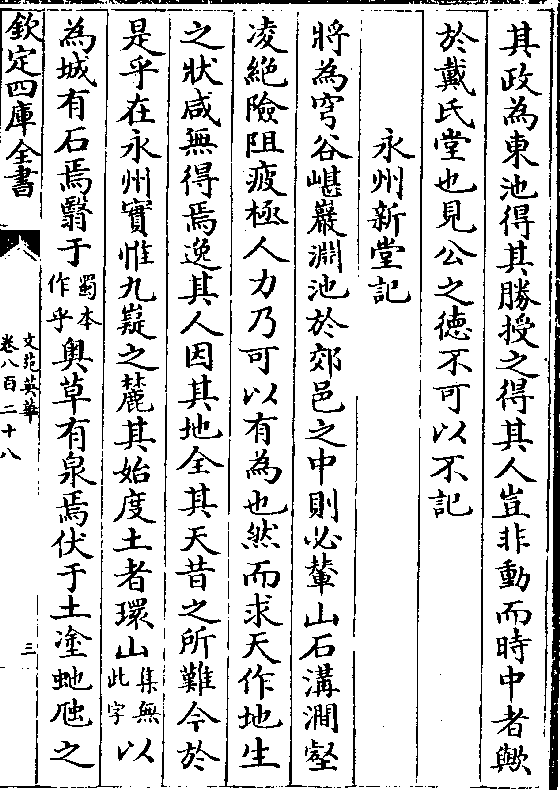 其政為東池得其勝授之得其人豈非動而時中者歟
於戴氏堂也見公之德不可以不記
永州新堂記
將為穹谷嵁巖淵池於郊邑之中則必輦山石溝澗壑
凌絕險阻疲極人力乃可以有為也然而求天作地生
之狀咸無得焉逸其人因其地全其天昔之所難今於
是乎在永州實惟九嶷之麓其始度土者環山集無此字以
為城有石焉翳于蜀本作乎奧草有泉焉伏于土塗虵虺之
欽定四庫全書
文苑英華
卷八百二十八
三